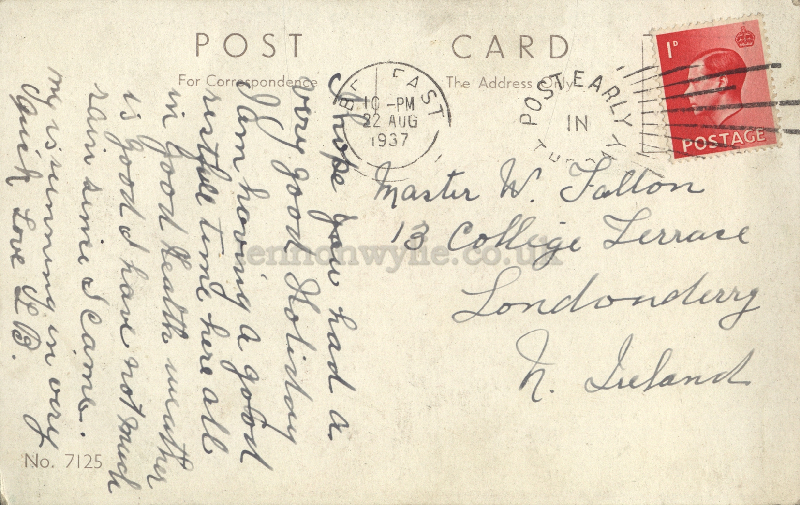 POST CARD
For Correspondence
The Address Only
BELFAST
10 - PM
22 AUG
1937
POST EARLY
IN
1D
POSTAGE
Master W. Fallon
13 College Terrace
Londonderry
N. Ireland
I hope you had a
very good Holiday
I am having a good
restful time here all
in good health weather
is good I have not much
rain since I came.
my is running in very
quick Love L B.
No. 7125
lennonwylie.co.uk